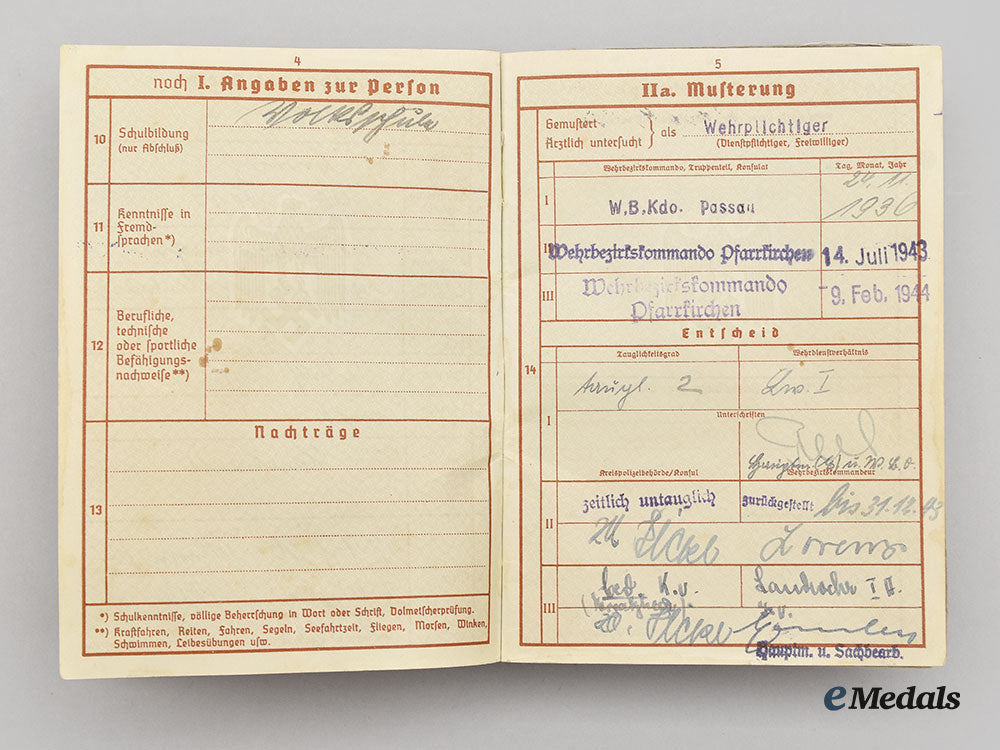 4
noch I. Angaben zur Person
10
Schulbildung
(nur Abschluß)
Volksschule
11
Kenntnisse in
Fremd-
sprachen*)
12
Berufliche,
technische
oder sportliche
Befähigungs-
nachweise**)
Nachträge
13
*) Schulkenntnisse, völlige Beherrschung in Wort oder Schrift, Dolmetscherprüfung.
**) Kraftfahren, Reiten, Fahren, Segeln, Seefahrtzeit, Fliegen, Morsen, Winken,
Schwimmen, Leibesübungen usw.
5
IIa. Musterung
Gemustert
Ärztlich untersucht } als Wehrplichtiger
(Dienstpflichtiger, Freiwilliger)
Wehrbezirkskommando, Truppenteil, Konsulat Tag, Monat, Jahr
I W.B.Kdo. Passau 24. 11. 1936
II Wehrbezirkskommando Pfarrkirchen 14. Juli 1943
III Wehrbezirkskommando
Pfarrkirchen
-9. Feb. 1944
Entscheid
14
Tauglichkeitsgrad Wehrdienstverhältnis
I taugl. 2 Lw. I
Unterschriften
Kreispolizeibehörde/Konsul Wehrbezirkskommandeur
II zeitlich untauglich zurückgestellt bis 31.12.43
Lorenz
III bed. K.v.
Hauptm. u. Sachbearb.
eMedals